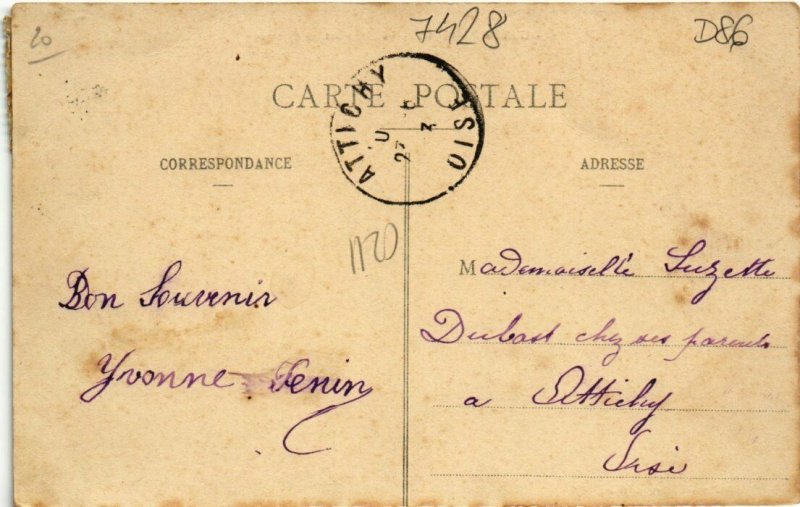 20
7428
D86
CARTE POSTALE
ATTICHY OISE
27
CORRESPONDANCE
ADRESSE
1120
Bon Souvenir
Yvonne Fenin
Mademoiselle Suzette
Dubast chez ses parents
a Attichy
Oise